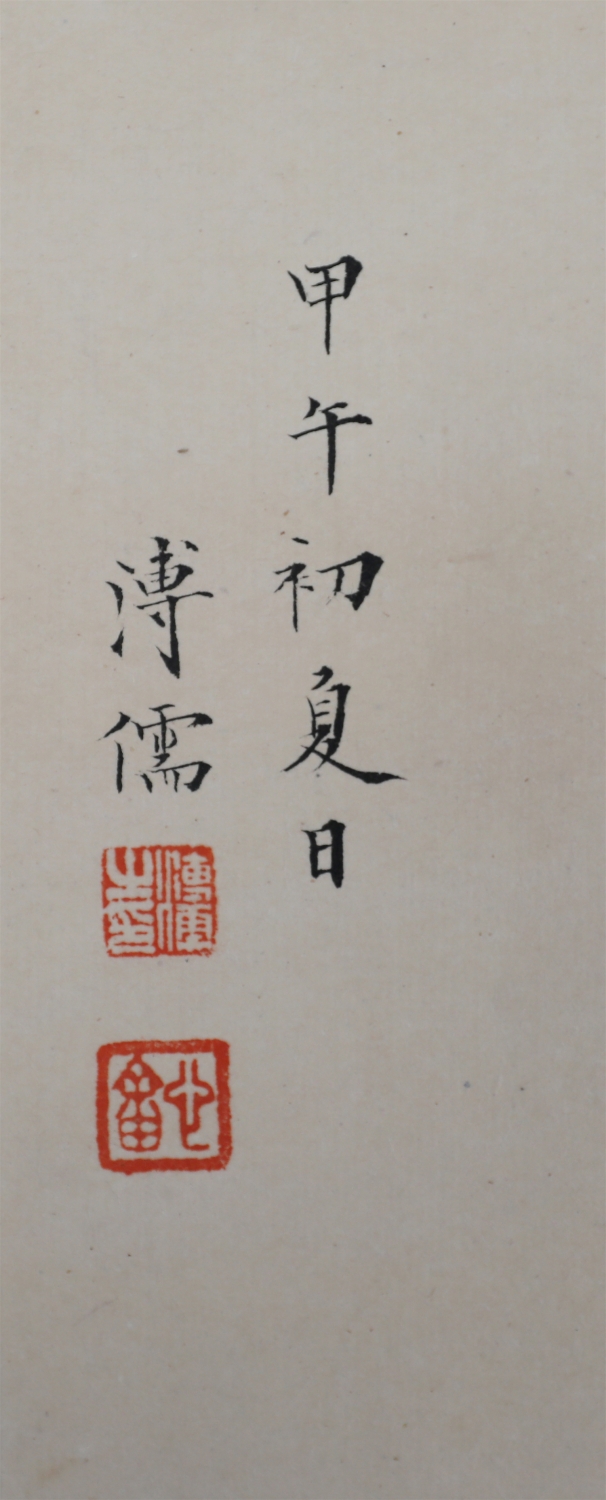 甲午初夏日
溥儒
溥儒之印
心畬